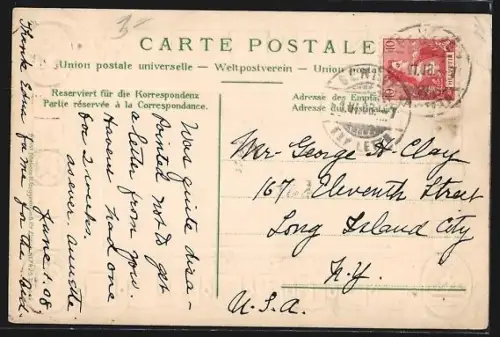 3-
CARTE POSTALE
Union postale universelle — Weltpostverein — Union postale
Reserviert für die Korrespondenz
Partie réservée à la Correspondance.
Adresse des Empfän
Adresse des destina
10
HELVETIA
Was quite disa-
pointed not to get
a letter from you.
Havent had one
for 2 weeks.
as ever. auntie
June 1. 08
Thank Edna for me for the
Mr. George H. Clay
167 Eleventh Street
Long Island City
N.Y.
U.S.A.